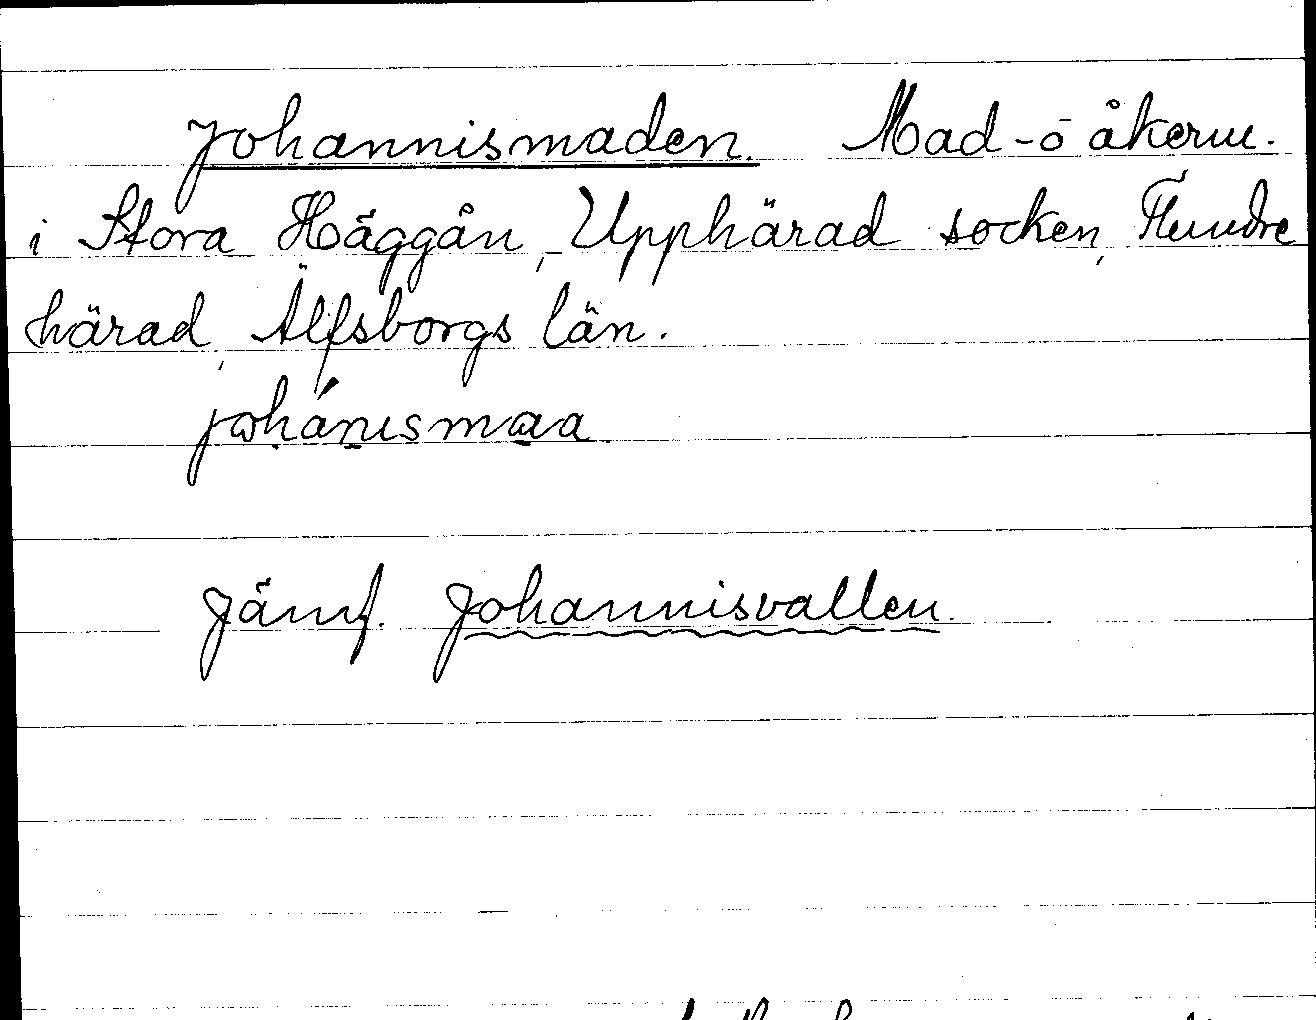 Johannismaden. Mad- o åkerm.
i Stora Häggån, Upphärad socken, Flundre
härad, Älfsborgs län.
johánismaa
Jämf. Johannisvallen.